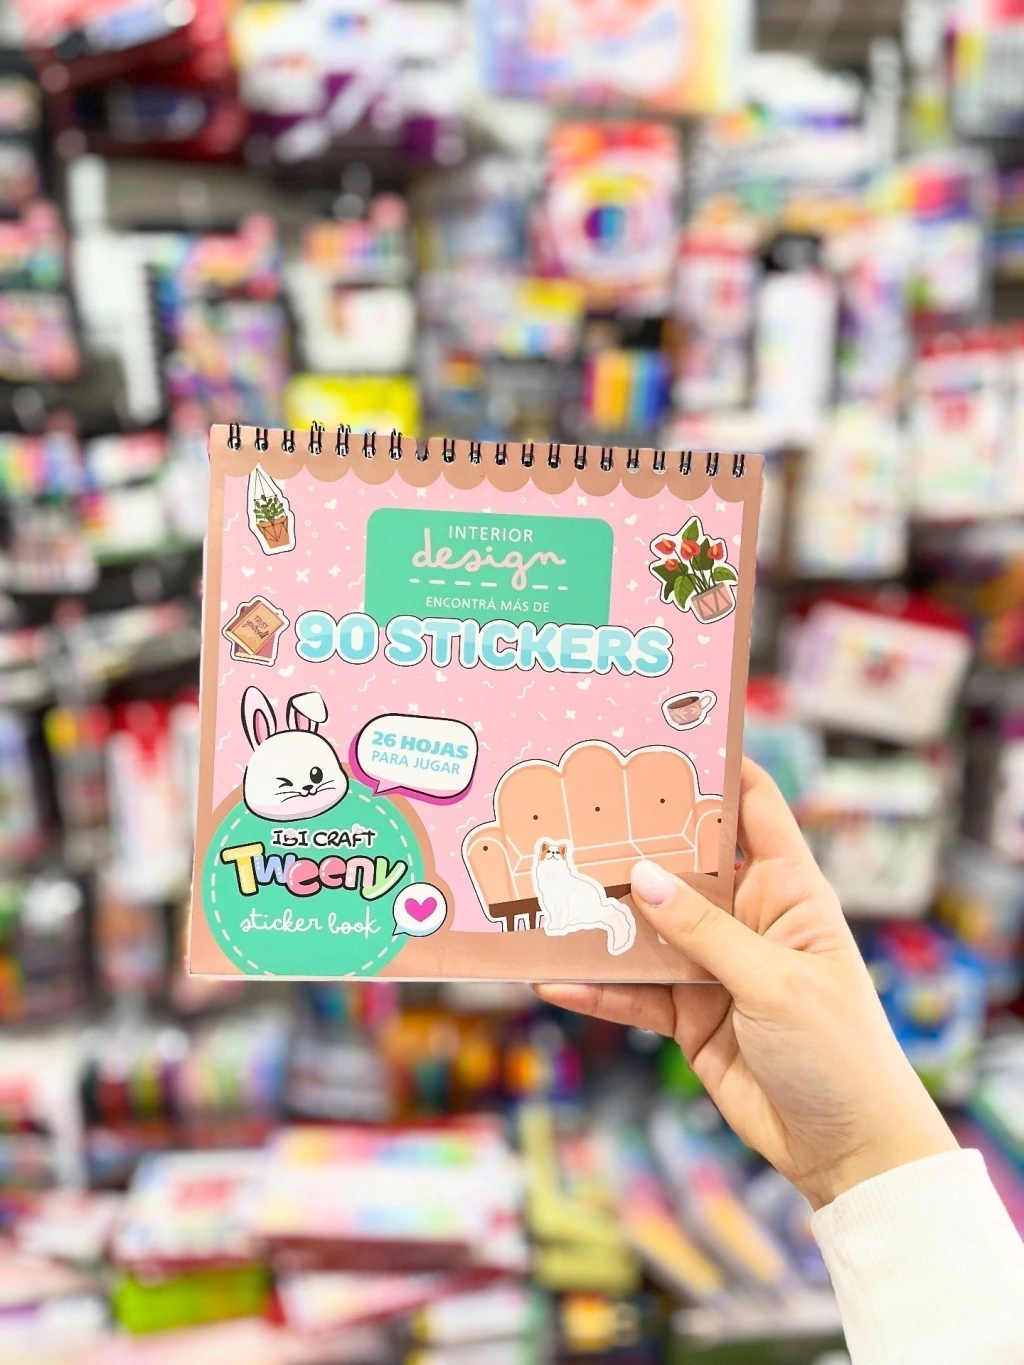 INTERIOR
design
ENCONTRÁ MÁS DE
90 STICKERS
26 HOJAS
PARA JUGAR
IBI CRAFT
Tweeny
sticker book